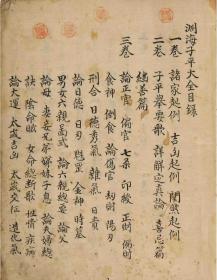 淵海子平大全目録
一卷 諸家起例 吉凶起例
二卷 子平舉要歌 詳解定真論 喜忌篇
繼善篇
三卷
論正官 偏官 七杀 印綬 正財 偏財
食神 倒食 論傷官 劫財 陽刃
刑合 日德秀氣 雜氣 日貴
論日德 日刃 魁罡 金神 時墓
男女六親 論六親總要 論父
論母 妻妾 兄弟姊妹 子息 論夫婦總
訣 陰命賦 女命總断歌 性情 疾病
論大運 太歲吉凶 太歲交征 造化氣